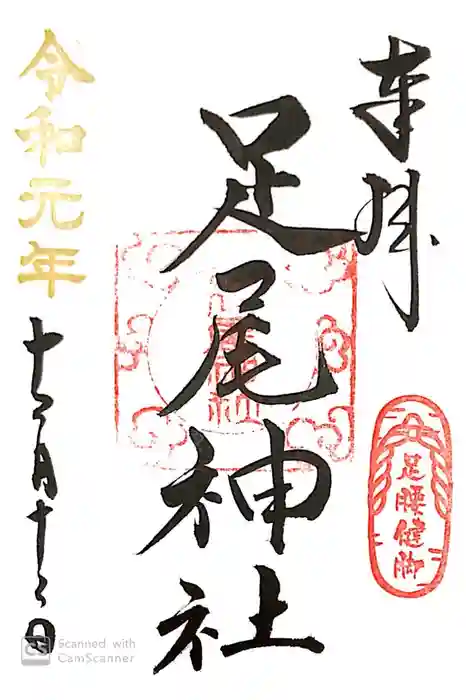 奉拝
足腰健脚
足尾神社
令和元年
十二月十二日
Scanned with
CamScanner